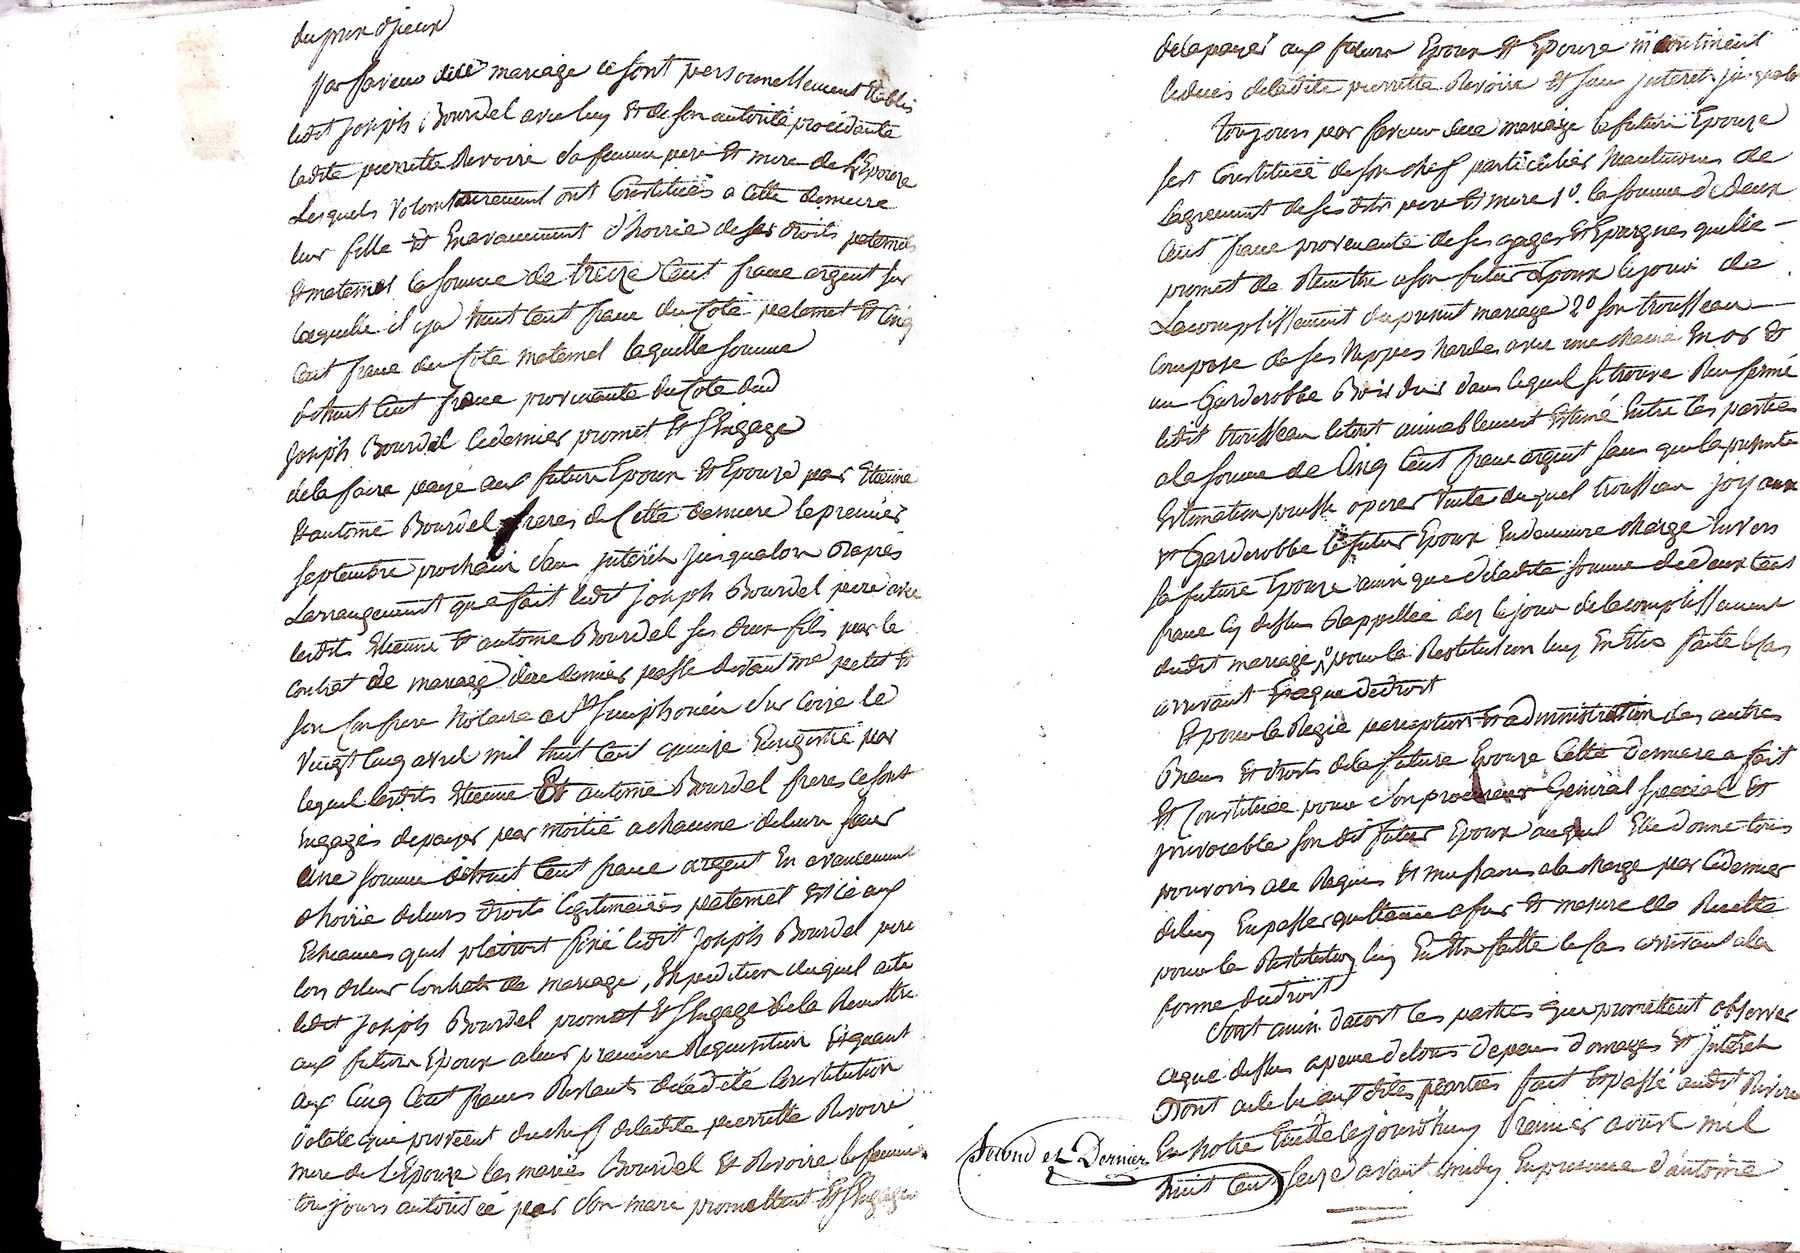 du prix d'jceux
par faveur dud mariage ce sont personnellement Etablis
ledit Joseph Bourdel avec luy Et de son autorité procédante
ladite pierrette Revoire sa femme pere Et mere de L'Epouze
Lesquels Volontairement ont Constitués a Cette derniere
leur fille Et En avancement d'hoirie de ses droits paternels
Et maternel la somme de treize Cent franc argent sur
laquelle il ya huit Cent franc du Coté paternel Et Cinq
Cent franc du Coté maternel laquelle somme
de huit Cent franc provenante du Coté dud
Joseph Bourdel ce dernier promet Et S'Engage
de la faire payé aux futurs Epoux Et Epouze par Etienne
Et antoine Bourdel freres de Cette derniere le premier
septembre prochain sans jnterêts jusqualors d'après
Larrangement qua fait ledit Joseph Bourdel pere avec
lesdits Etienne Et antoine Bourdel ses deux fils par le
contrat de mariage de ce dernier passé devant me petit Et
son Confrere Notaire a St Simphorien sur Coize le
Vingt Cinq avril mil huit Cent quinze Enregistré par
lequel lesdits Etienne Et antoine Bourdel freres ce sont
Engagés de payer par moitié a chacune de leurs sœur
Une somme de huit Cent franc argent En avancement
d'hoirie de leurs droits légitimaires paternel Et Ce aux
Echeances quil plairoit fixé ledit Joseph Bourdel pere
lors de leur Contrats de mariage, Expedition duquel acte
ledit Joseph Bourdel promet Et S'Engage de la Remettre
aux futurs Epoux a leur premiere Requisition Et quant
aux Cinq Cent francs Restants de ladite Constitution
dotale qui provient du chef de ladite pierrette Revoire
mere de L'Epouze les mariés Bourdel Et Revoire la femme
toujours autorisée par son mari promettent Et S'Engagent
de la payer aux futurs Epoux Et Epouze incontinent
le deces de ladite pierrette Revoire Et sans jnterets jusqualors
Toujours par faveur dud mariage la future Epouze
sest Constituée de son chef particulier Neantmoins de
Lagrement de ses dits pere Et mere 1º. la somme de deux
Cent franc provenante de ses gages Et Epargnes quelle
promet de Remettre a son futur Epoux le jour de
Lacomplissement du present mariage 2º son trousseau
composé de ses Nippes hardes avec une chaine En or Et
un Garderobbe Bois dur dans lequel se trouve Renfermé
ledit trousseau le tout aimablement Estimé Entre les parties
a la somme de Cinq Cent franc argent sans que la presente
Estimation puisse operer Vente duquel trousseau joyaux
Et Garderobbe le futur Epoux En demeure chargé Envers
sa future Epouze ainsi que de ladite somme de deux Cent
franc cy dessus Rappellée des le jour de lacomplissement
dudit mariage pour la Restitution luy En Etre faite le Cas
arrivant Et que de droit
Et pour la Regie perception Et administration des autres
Biens Et droits de la future Epouze Cette derniere a fait
Et Constitué pour son procureur Général special Et
jrrevocable son dit futur Epoux auquel Elle donne tous
pouvoirs a ce Requis Et necessaires a la charge par Ce dernier
de luy En passer quittance a fur Et mesure de Recette
pour la Restitution luy En Etre faitte le Cas arrivant a la
forme du droit
Sont ainsi dacort les parties quи promettent observer
ce que dessus a peine de tous depens domages Et jnterets
Dont acte lu aux dites parties fait Et passé audit
En Notre Etude ce jourd'huy premier aoust mil
Second et Dernier
huit Cent seize avant midy En presence d'antoine